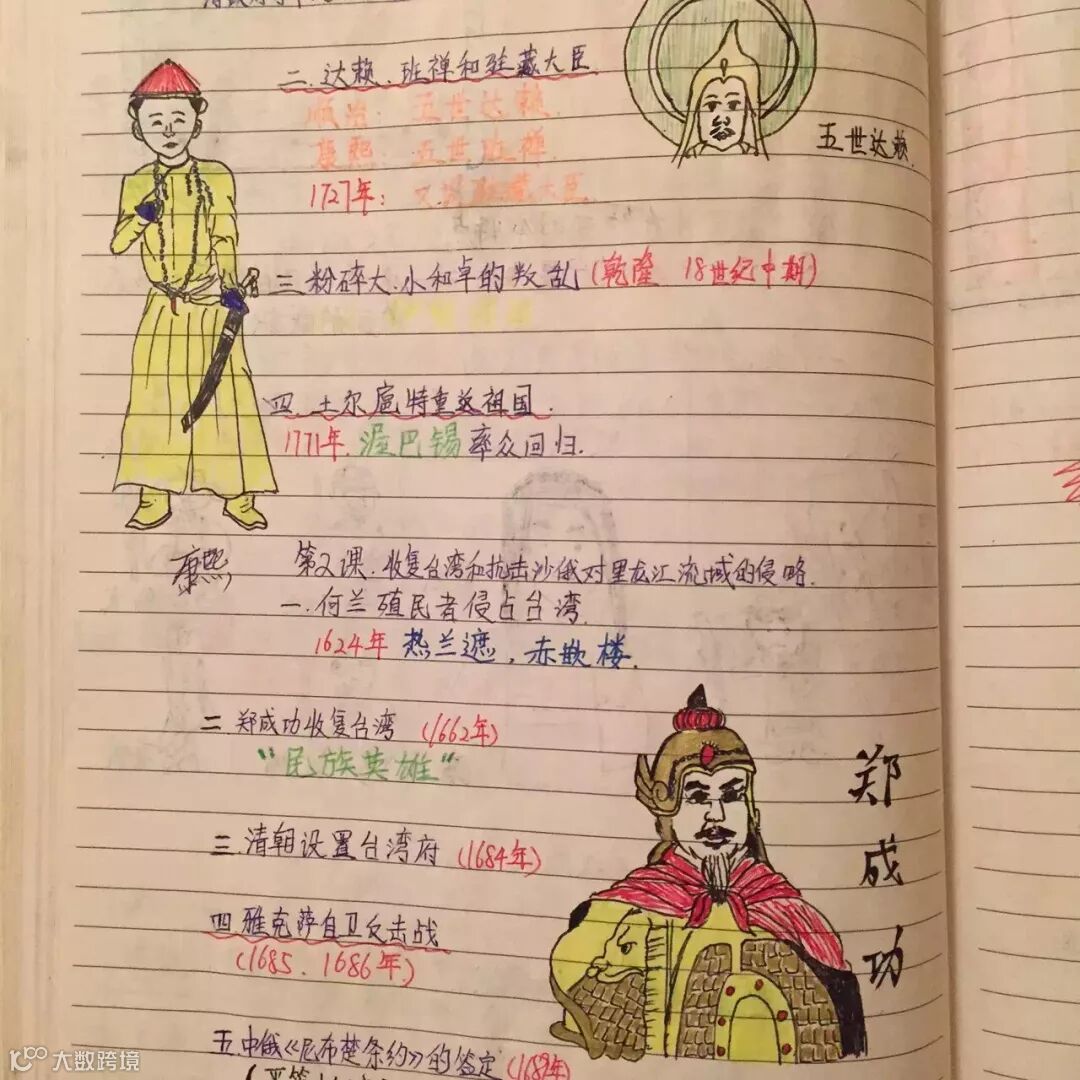 二.达赖、班禅和驻藏大臣
五世达赖
顺治：五世达赖
康熙：五世班禅
1727年：又设驻藏大臣
三.粉碎大.小和卓的叛乱(乾隆 18世纪中期)
四.土尔扈特重返祖国.
1771年.渥巴锡率众回归.
康熙
第2课.收复台湾和抗击沙俄对黑龙江流域的侵略.
一.何兰殖民者侵占台湾.
1624年 热兰遮，赤嵌楼.
二 郑成功收复台湾 (1662年)
“民族英雄”
郑成功
三.清朝设置台湾府 (1684年)
四.雅克萨自卫反击战
(1685、1686年)
五.中俄《尼布楚条约》的签定 (1689年)
大数跨境